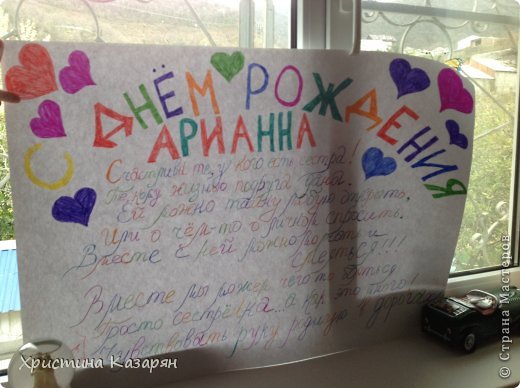 С ДНЁМ РОЖДЕНИЯ
АРИАННА
Счастливы те, у кого есть сестра!
подруга дана.
Ей можно тайну любую открыть,
Или о чём-то о личном спросить.
Вместе с ней можно и
смеяться!!!
Вместе мы можем чего-то
Просто сестрёнка...а как это много!
Чувствовать руку родную в дороге
Христина Казарян
© Страна Мастеров